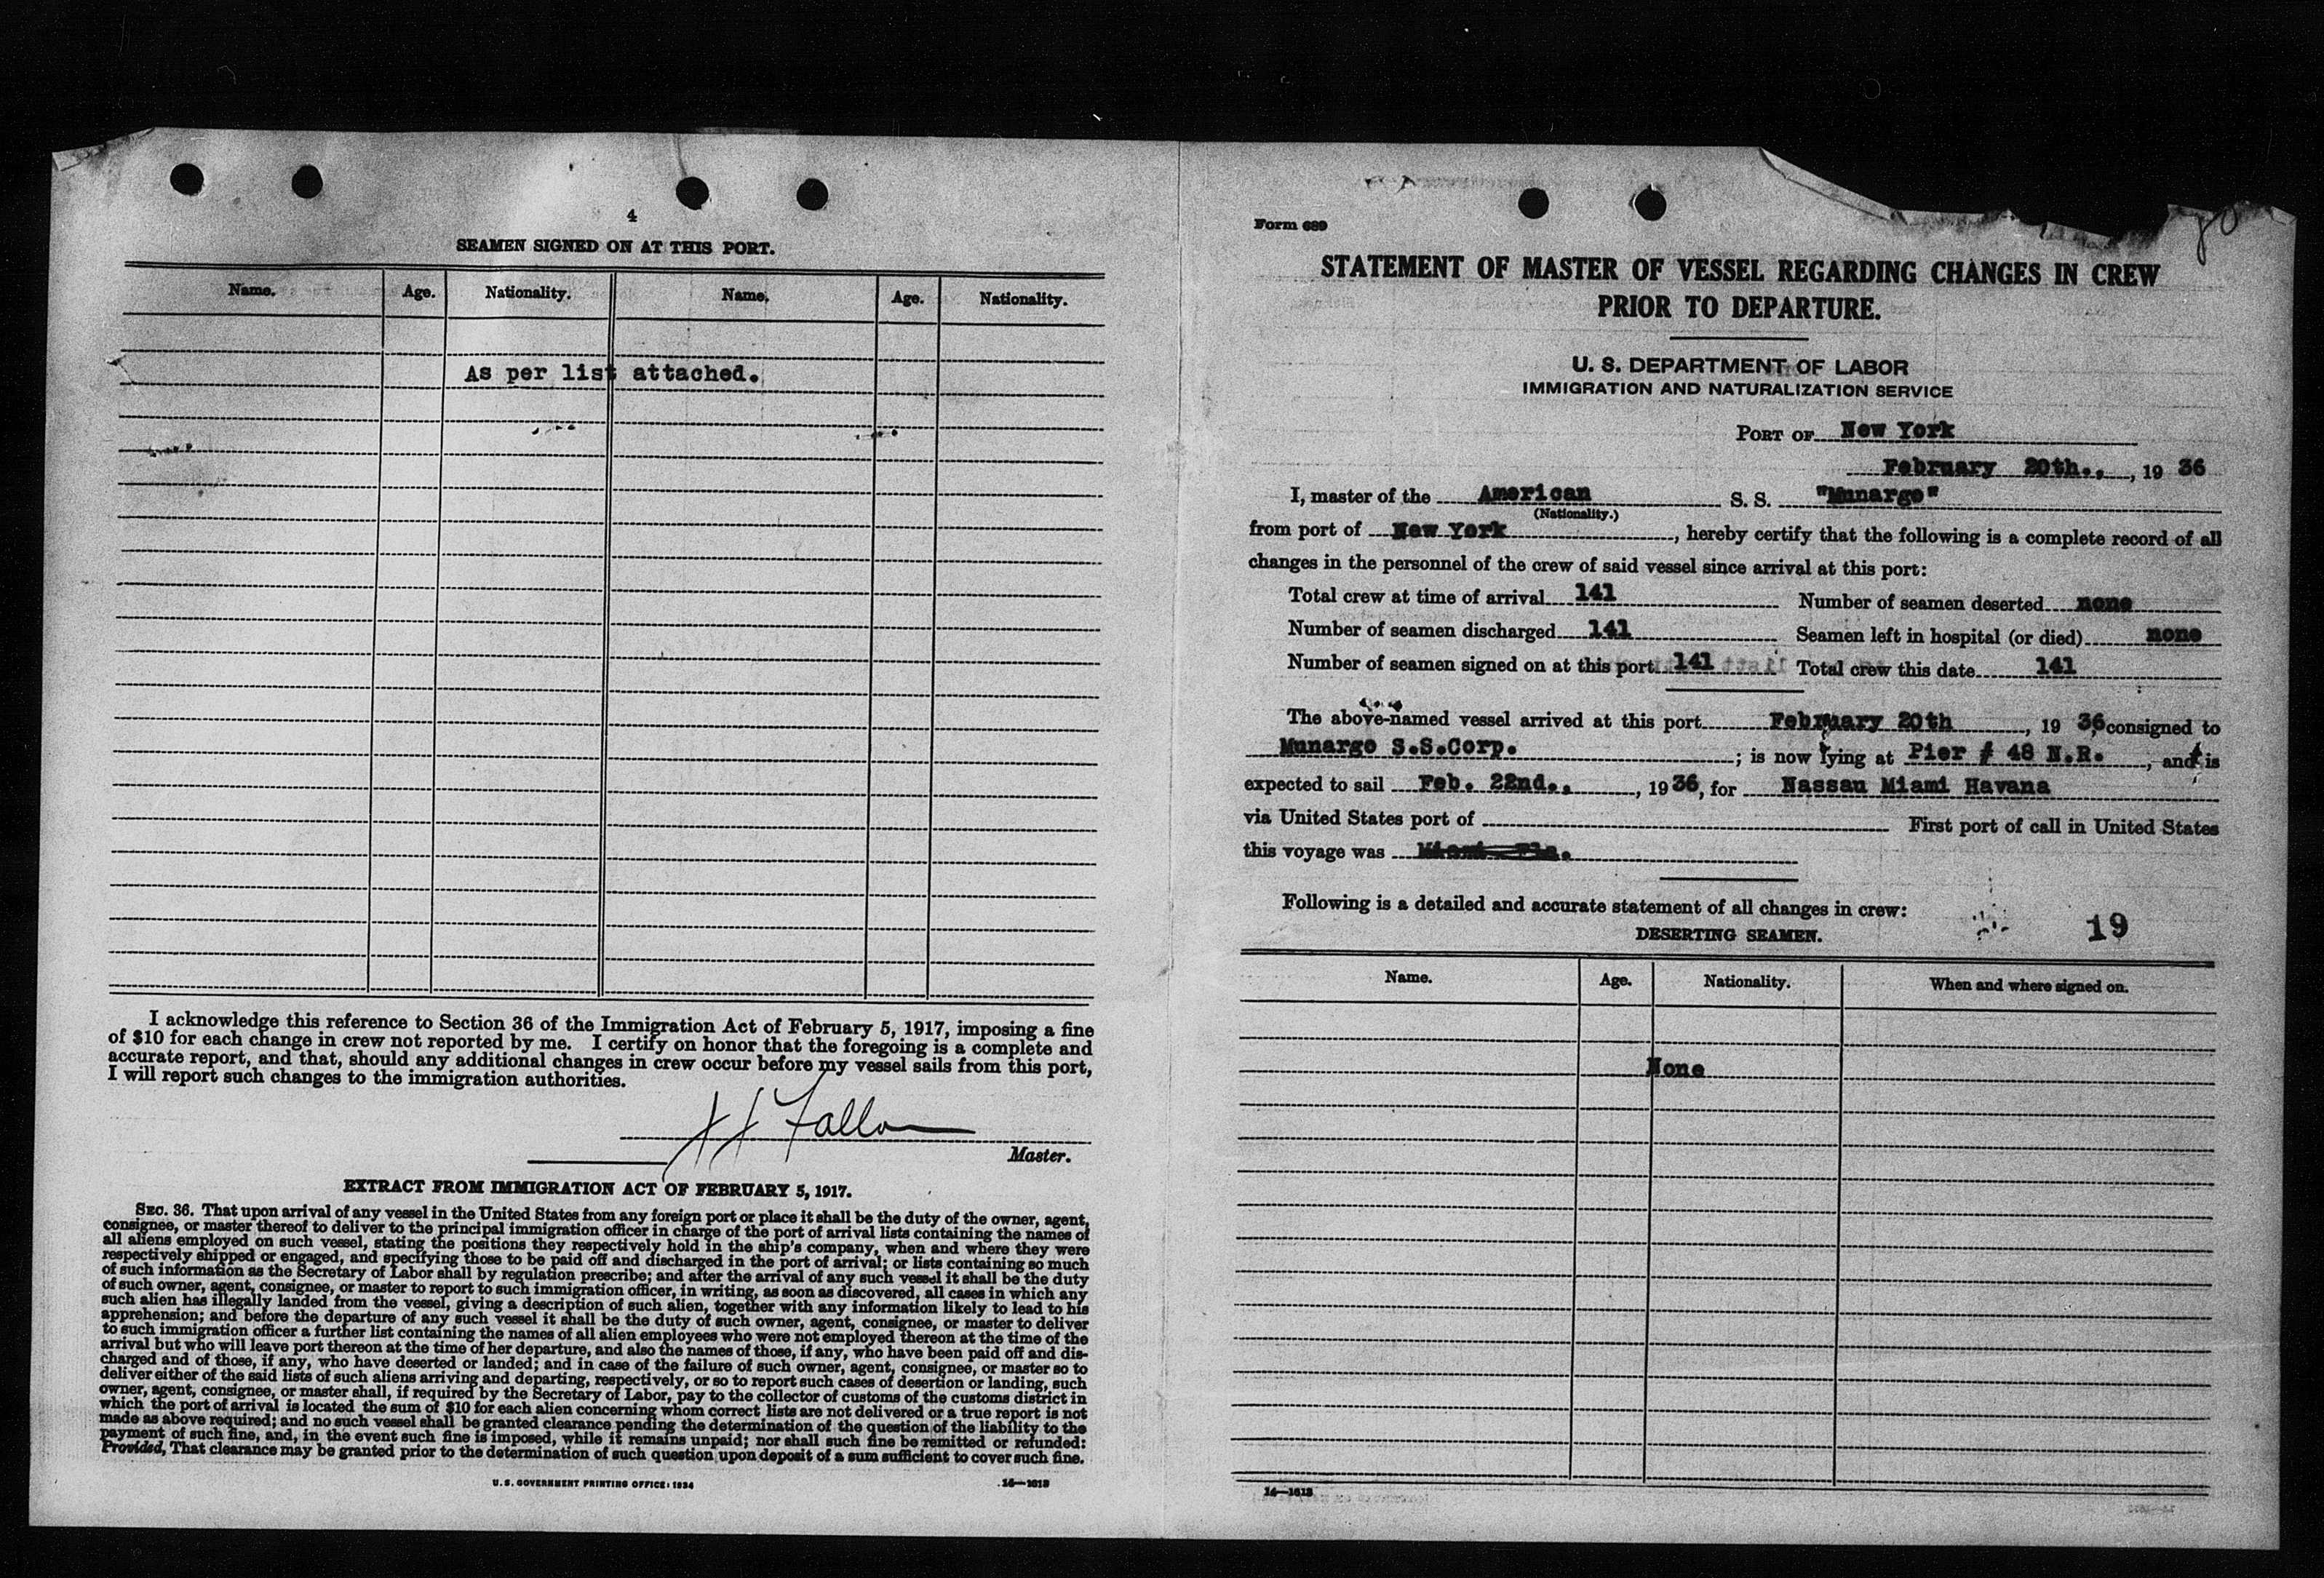 4
SEAMEN SIGNED ON AT THIS PORT.
Name. Age. Nationality. Name. Age. Nationality.
As per list attached.
I acknowledge this reference to Section 36 of the Immigration Act of February 5, 1917, imposing a fine
of $10 for each change in crew not reported by me. I certify on honor that the foregoing is a complete and
accurate report, and that, should any additional changes in crew occur before my vessel sails from this port,
I will report such changes to the immigration authorities.
Master.
EXTRACT FROM IMMIGRATION ACT OF FEBRUARY 5, 1917.
SEC. 36. That upon arrival of any vessel in the United States from any foreign port or place it shall be the duty of the owner, agent,
consignee, or master thereof to deliver to the principal immigration officer in charge of the port of arrival lists containing the names of
all aliens employed on such vessel, stating the positions they respectively hold in the ship's company, when and where they were
respectively shipped or engaged, and specifying those to be paid off and discharged in the port of arrival; or lists containing so much
of such information as the Secretary of Labor shall by regulation prescribe; and after the arrival of any such vessel it shall be the duty
of such owner, agent, consignee, or master to report to such immigration officer, in writing, as soon as discovered, all cases in which any
such alien has illegally landed from the vessel, giving a description of such alien, together with any information likely to lead to his
apprehension; and before the departure of any such vessel it shall be the duty of such owner, agent, consignee, or master to deliver
to such immigration officer a further list containing the names of all alien employees who were not employed thereon at the time of the
arrival but who will leave port thereon at the time of her departure, and also the names of those, if any, who have been paid off and dis-
charged and of those, if any, who have deserted or landed; and in case of the failure of such owner, agent, consignee, or master so to
deliver either of the said lists of such aliens arriving and departing, respectively, or so to report such cases of desertion or landing, such
owner, agent, consignee, or master shall, if required by the Secretary of Labor, pay to the collector of customs of the customs district in
which the port of arrival is located the sum of $10 for each alien concerning whom correct lists are not delivered or a true report is not
made as above required; and no such vessel shall be granted clearance pending the determination of the question of the liability to the
payment of such fine, and, in the event such fine is imposed, while it remains unpaid; nor shall such fine be remitted or refunded:
Provided, That clearance may be granted prior to the determination of such question upon deposit of a sum sufficient to cover such fine.
U. S. GOVERNMENT PRINTING OFFICE: 1934 14—1613
Form 689
STATEMENT OF MASTER OF VESSEL REGARDING CHANGES IN CREW
PRIOR TO DEPARTURE.
U. S. DEPARTMENT OF LABOR
IMMIGRATION AND NATURALIZATION SERVICE
PORT OF New York
February 20th., , 19 36
I, master of the American S. S. "Munargo"
(Nationality.)
from port of New York , hereby certify that the following is a complete record of all
changes in the personnel of the crew of said vessel since arrival at this port:
Total crew at time of arrival 141 Number of seamen deserted none
Number of seamen discharged 141 Seamen left in hospital (or died) none
Number of seamen signed on at this port 141 Total crew this date 141
The above-named vessel arrived at this port February 20th , 19 36, consigned to
Munargo S.S.Corp. ; is now lying at Pier # 48 N.R. , and is
expected to sail Feb. 22nd., , 19 36, for Nassau Miami Havana
via United States port of First port of call in United States
this voyage was Miami Fla.
Following is a detailed and accurate statement of all changes in crew:
19
DESERTING SEAMEN.
Name. Age. Nationality. When and where signed on.
None
14—1613